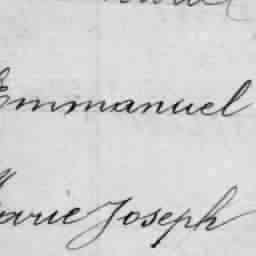 Emmanuel
Marie Joseph